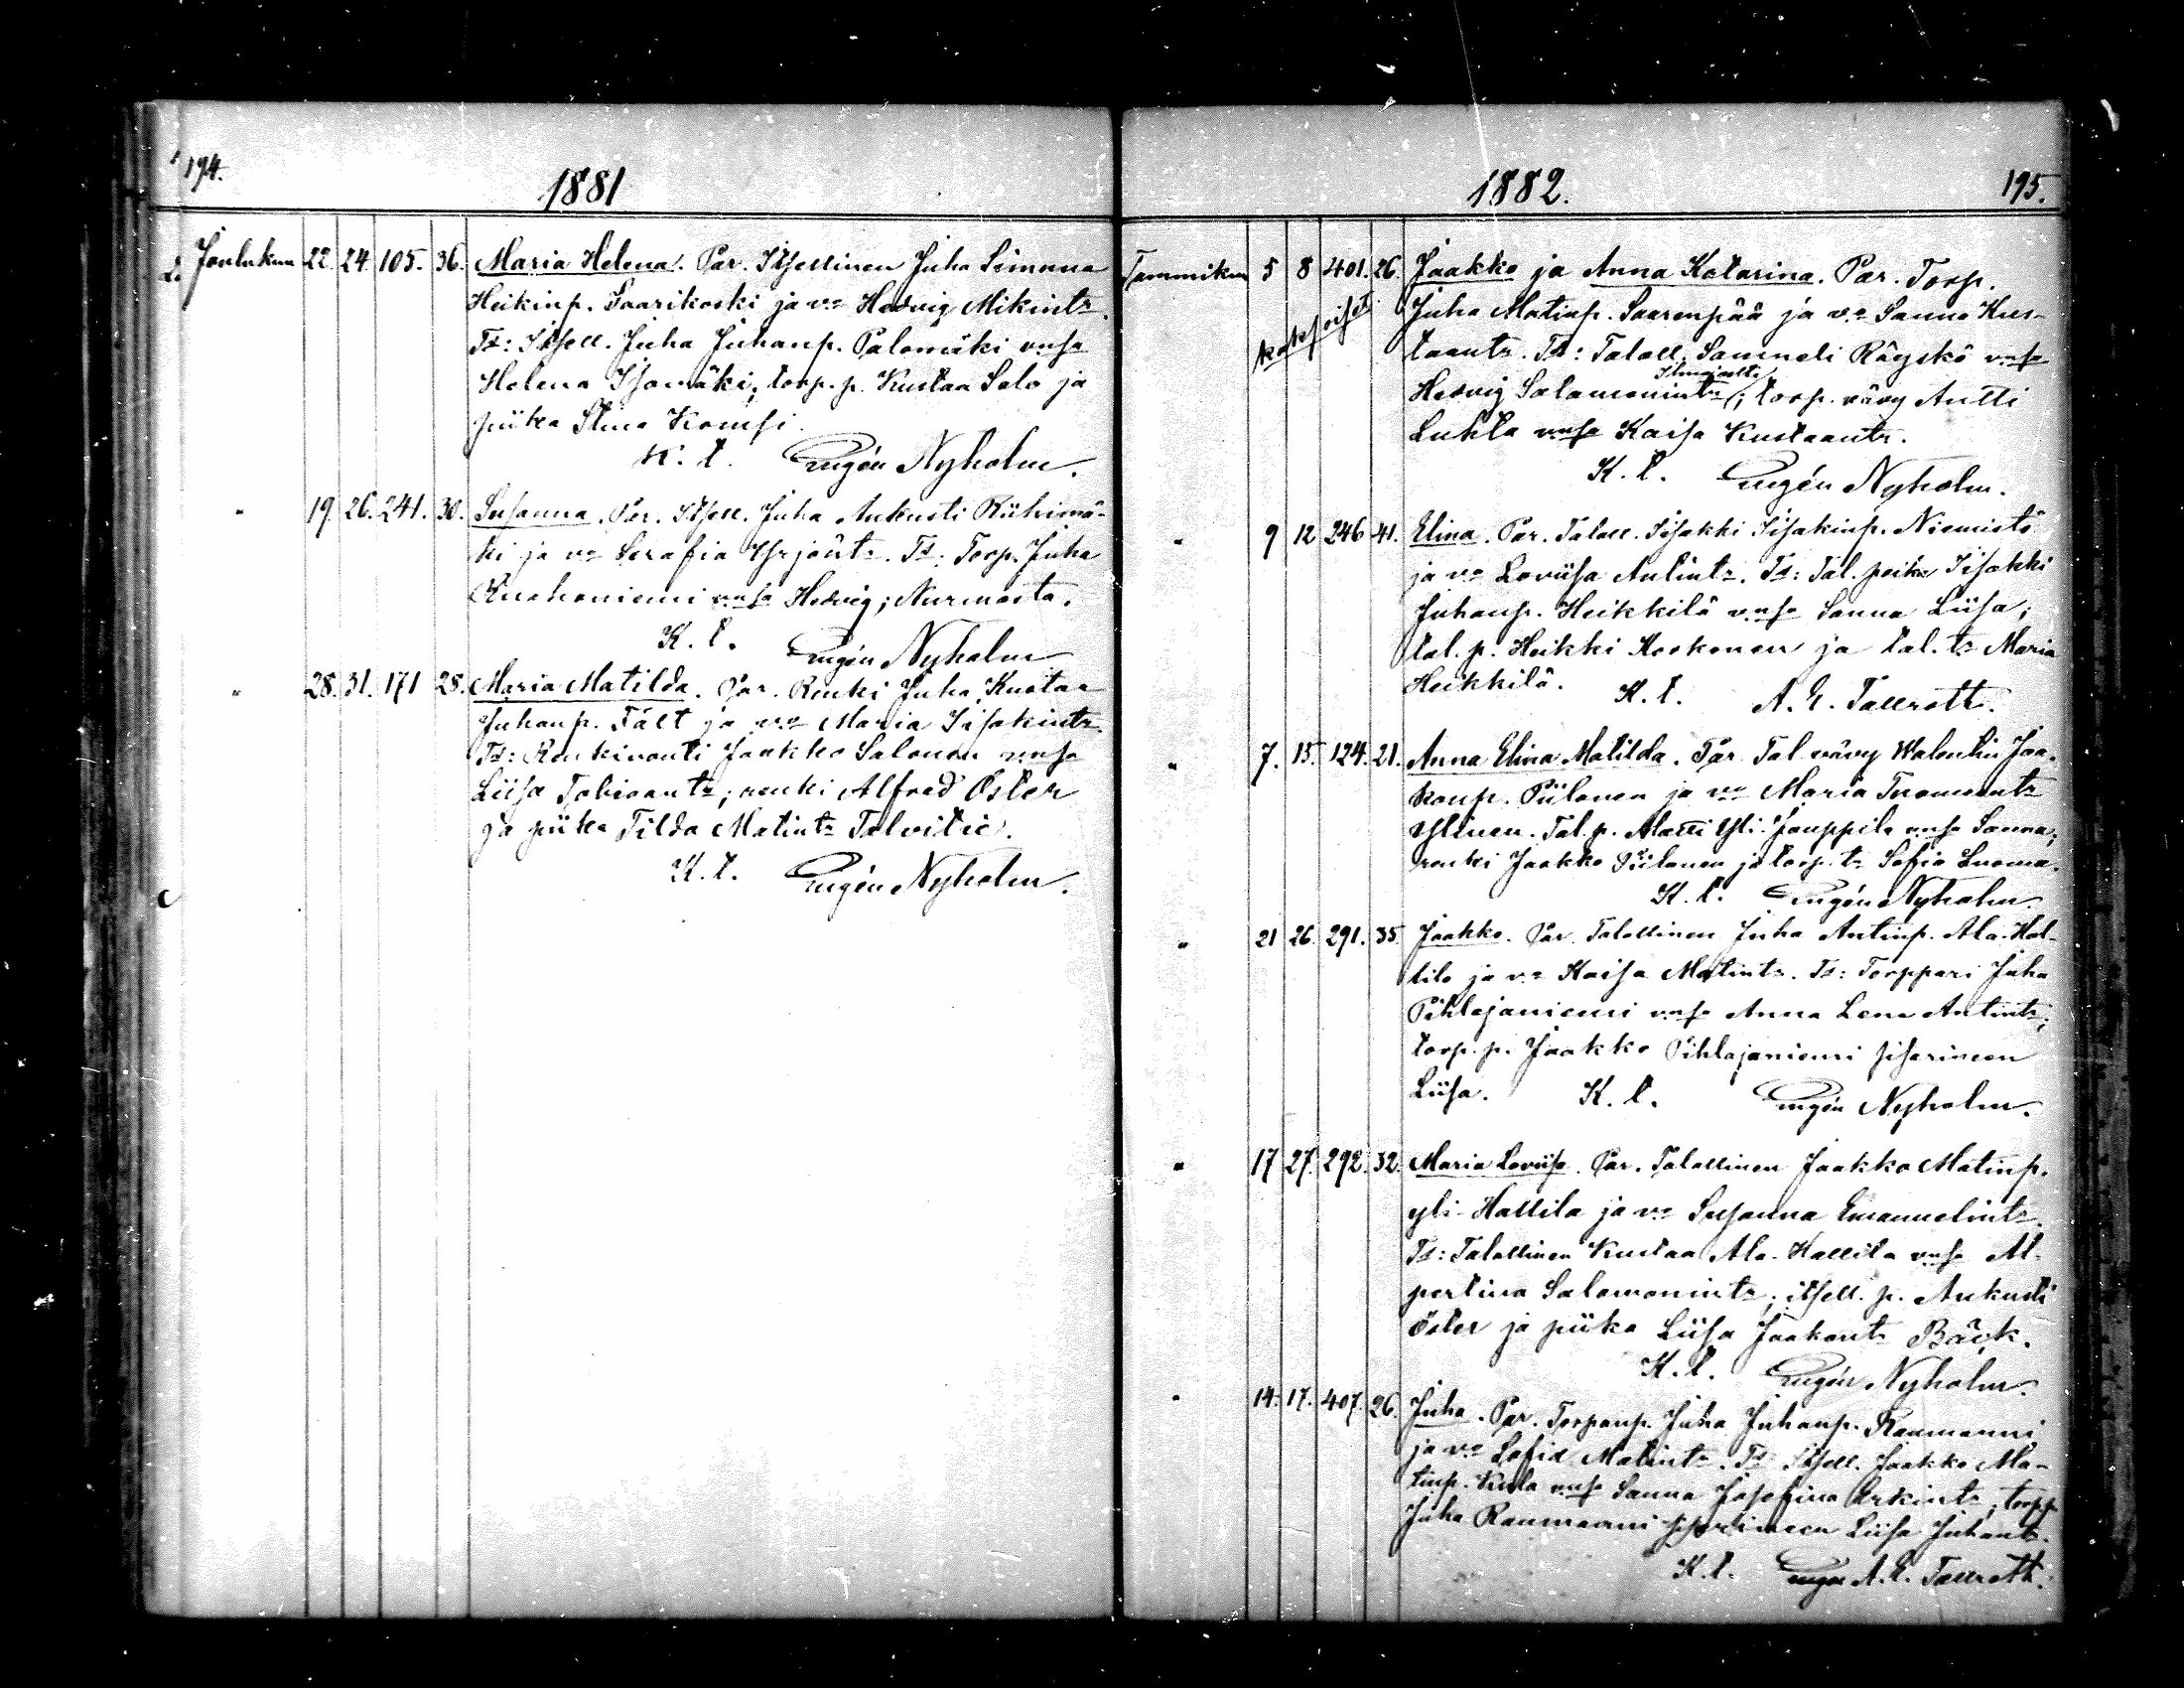 194.
1881
Joulukuu 22. 24. 105. 36. Maria Helena. Par. Itsellinen Juha Simuna
Heikinp. Saarikoski ja vo Hedvig Mikintr.
Td: Itsell. Juha Juhanp. Palomäki vnsa
Helena Isomäki; torp. p. Kustaa Salo ja
piika Stina Komsi.
K. t. Eugén Nyholm.
" 19. 26. 241. 30. Susanna. Par. Itsell. Juha Aukusti Riihimä-
ki ja vo Serafia Yrjöntr. Td: Torp. Juha
Ruohoniemi vnsa Hedvig; Nurmosta.
K. t. Eugén Nyholm
" 28. 31. 171 28. Maria Matilda. Par. Renki Juha Kustaa
Juhanp. Fält ja vo Maria Iisakintr.
Td: Renkivouti Jaakko Salonen vnsa
Liisa Tobiaantr; renki Alfred Öster
ja piika Tilda Matintr Talvitie.
K. t. Eugén Nyholm.
1882.
195.
Tammikuu 5 8 401. 26. Jaakko ja Anna Katarina. Par. Torp.
kaksoiset
Juha Matinp. Saarenpää ja vo Sanna Kus-
taantr. Td: Taloll. Sameli Räyskö vnsa
Ilmajoelta
Hedvig Salamonintr; torp. vävy Antti
Luhta vnsa Kaisa Kustaantr.
K. t. Eugén Nyholm.
" 9 12 246 41. Elina. Par. Taloll. Iisakki Iisakinp. Niemistö
ja vo Loviisa Antintr. Td: Tal. poika Iisakki
Juhanp. Heikkilä vnsa Sanna Liisa;
tal. p. Heikki Koskonen ja tal. tr Maria
Heikkilä. K. t. A. E. Tallroth.
" 7. 15. 124. 21. Anna Elina Matilda. Par. Tal. vävy Walentin Jaa-
konp. Piilonen ja vo Maria Tuomaantr
Ylinen. Tal. p. Matti Yli-Jauppila vnsa Sanna;
renki Jaakko Piilonen ja torp. tr Sofia Luoma.
K. t. Eugén Nyholm.
" 21 26. 291. 35. Jaakko. Par. Talollinen Juha Antinp. Ala-Hal-
lila ja vo Kaisa Matintr. Td: Torppari Juha
Pihlajaniemi vnsa Anna Lena Antintr;
torp. p. Jaakko Pihlajaniemi sisarineen
Liisa. K. t. Eugén Nyholm.
" 17 27. 292. 32. Maria Loviisa. Par. Talollinen Jaakko Matinp.
yli-Hallila ja vo Susanna Emanuelintr.
Td: Talollinen Kustaa Ala-Hallila vnsa Al-
pertina Salamonintr; itsell. p. Aukusti
Öster ja piika Liisa Jaakontr Bäck.
K. t. Eugén Nyholm.
" 14. 17. 407. 26. Juha. Par. Torpanp. Juha Juhanp. Raumanni
ja vo Sofia Matintr. Td: Itsell. Jaakko Ma-
tinp. vnsa Sanna Josefina Erkintr; torpp.
Juha Raumanni sisarineen Liisa Juhantr.
K. t. A. E. Tallroth.